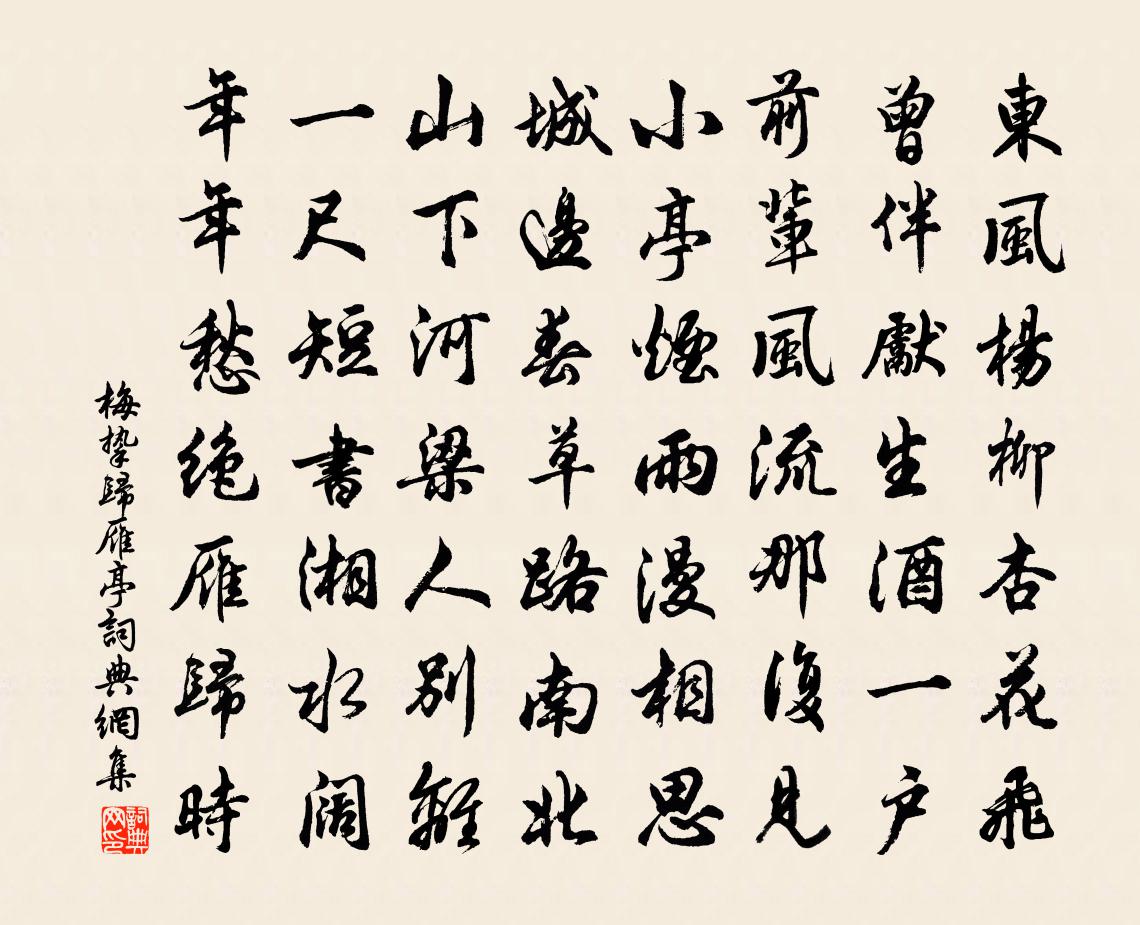 東風楊柳杏花飛
曾伴獻生酒一戶
前輩風流那復見
小亭煙雨漫相思
城邊春草路南北
山下河梁人別離
一尺短書湘水闊
年年愁絕雁歸時
梅摯歸雁亭詞典網集
詞典網印